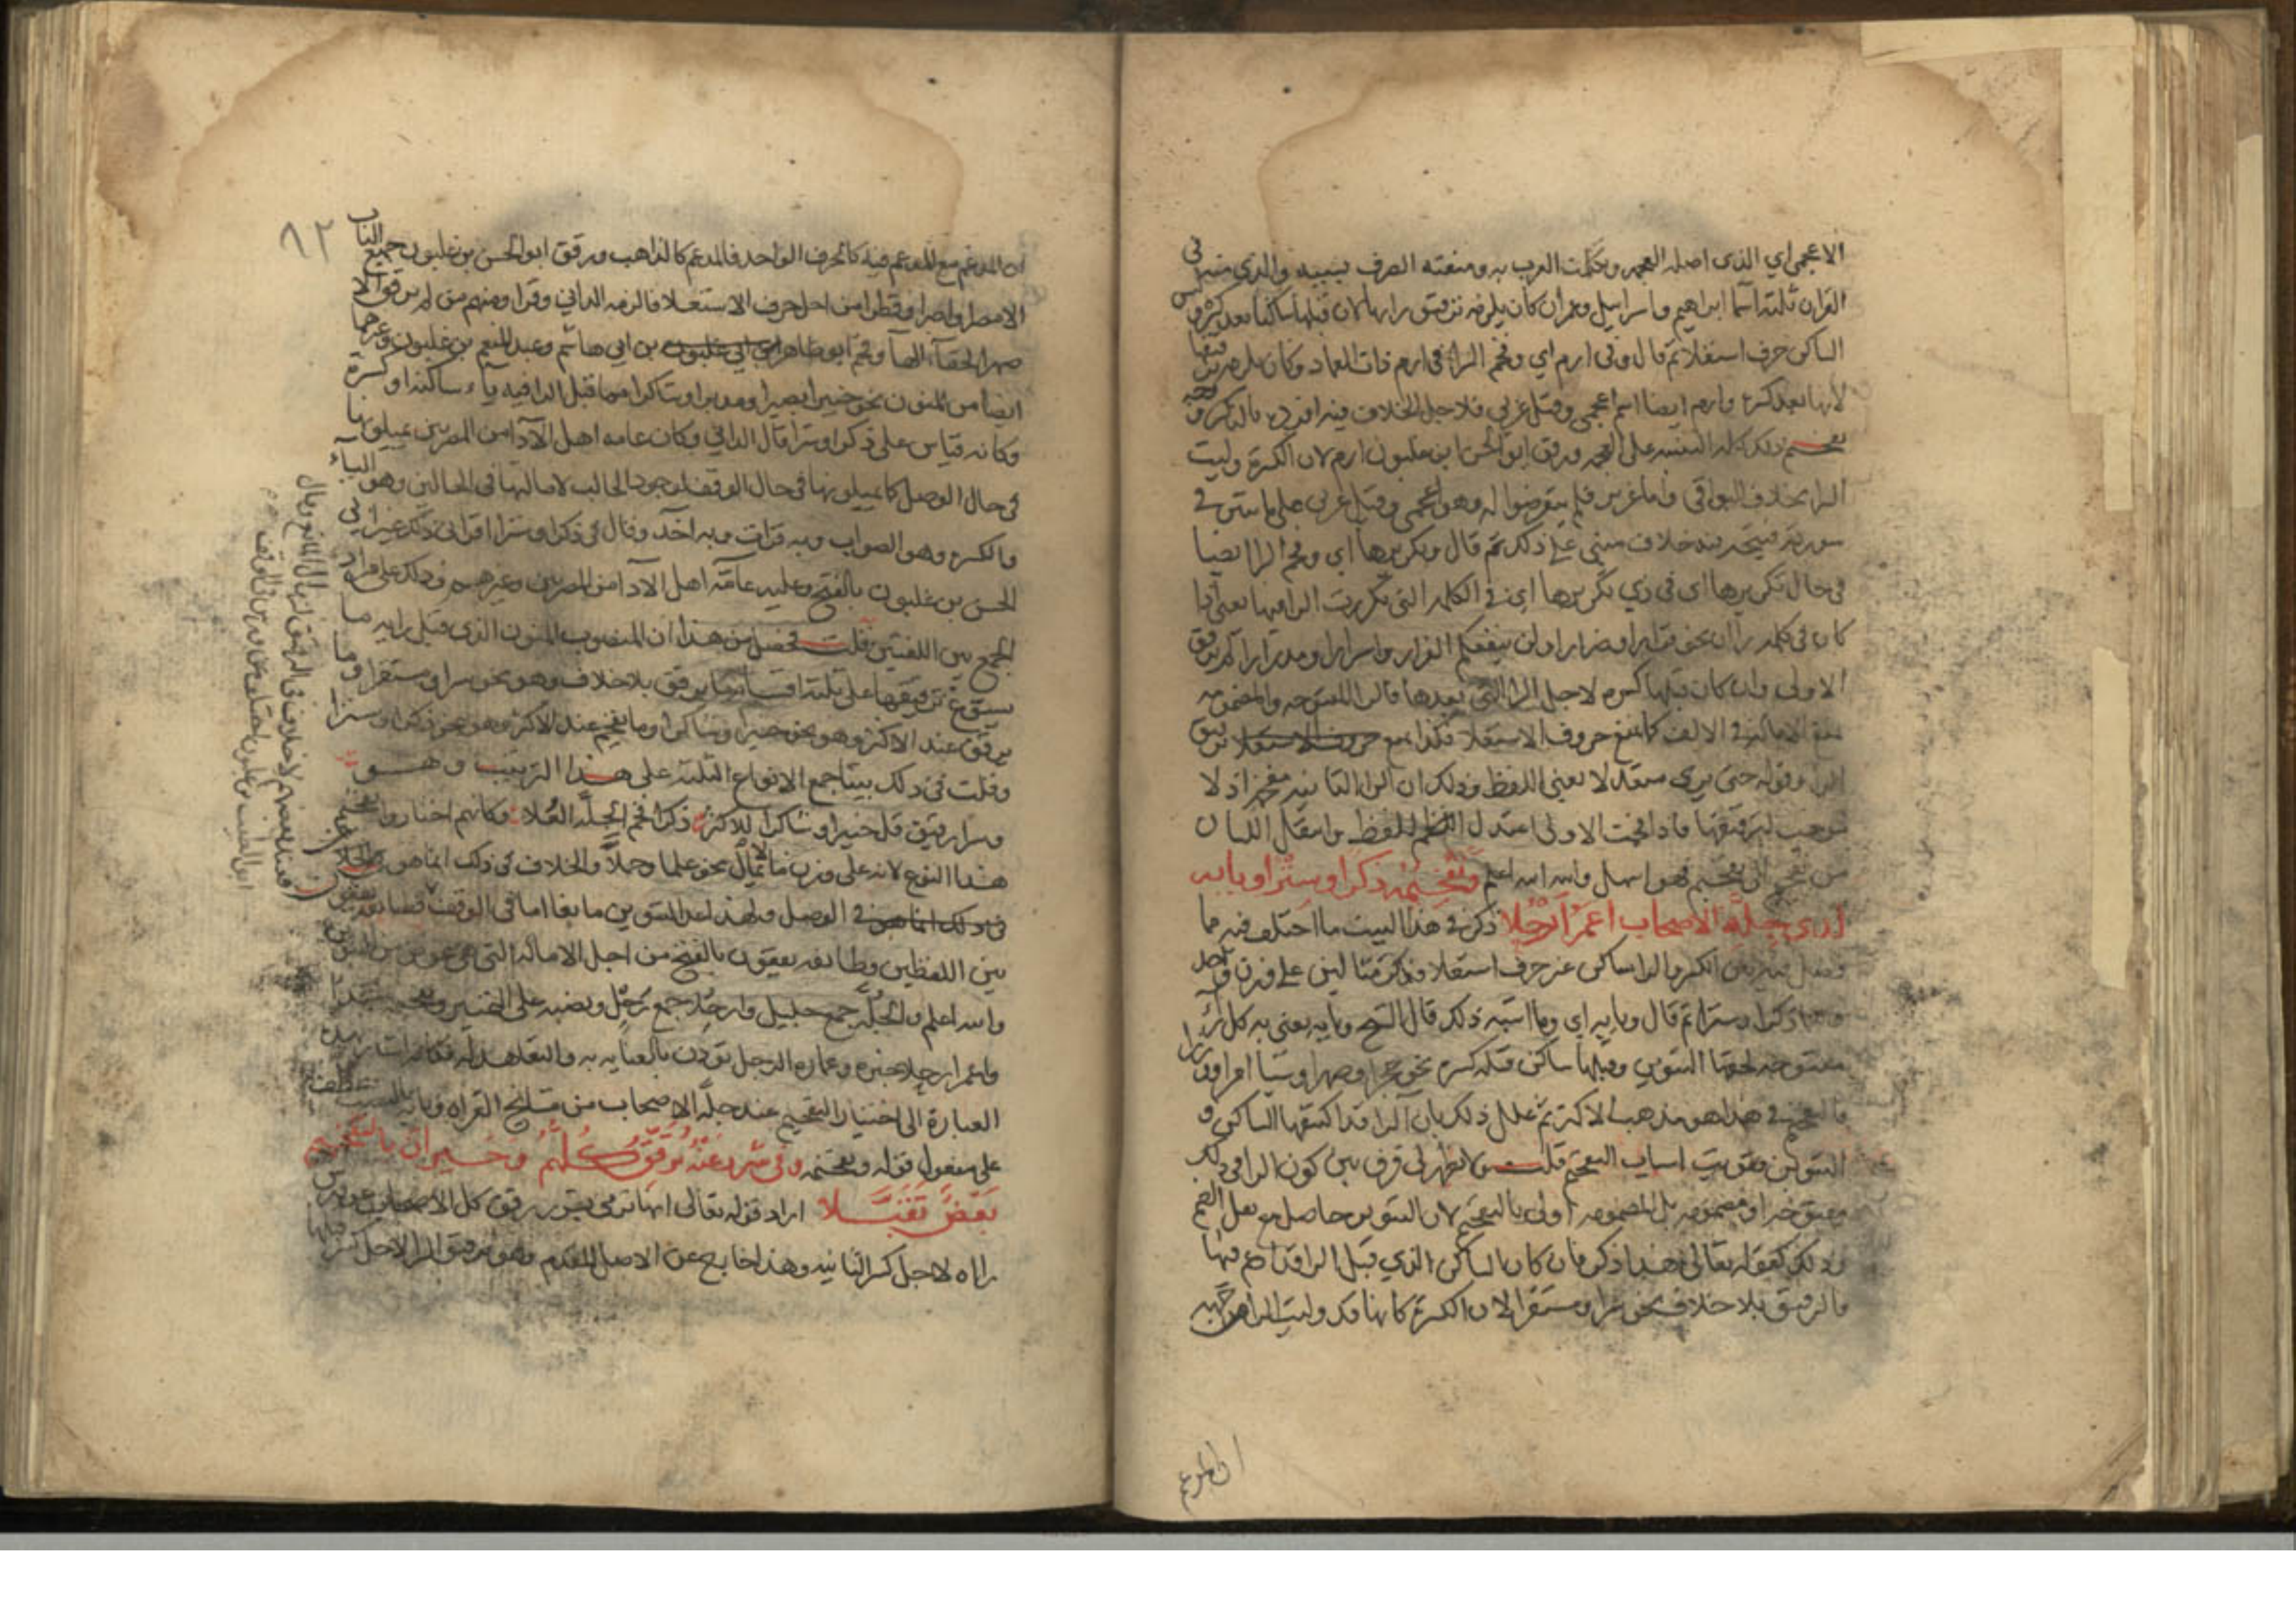 الاعجمي اي الذي اصله العجمه وتكلمت العرب به ومنعته الصرف بسببه والذي منه في
القران ثلثة اسما ابراهيم واسرائيل وعمران كان يلزمه ترقيق رايها لان قبلها ساكنا بعد كسر وليس
الساكن حرف استعلا ثم قال وفي ارم اي وفخم الرا في ارم ذات العماد وكان يلزمه ترقيقها
لانها بعد كسرة وارم ايضا اسم اعجمي وقيل عربي فلاجل الخلاف فيه افرده بالذكر
ذلك كله التنبيه على العجمه ورقق ابو الحسن ابن غلبون ارم لان الكسرة وليت
الرا بخلاف البواقي واما عزير فلم يتعرضوا له وهو اعجمي وقيل عربي على ما ستري في
سورته فيتجه فيه خلاف مبني على ذلك ثم قال وتكريرها اي وفخم الرا ايضا
في حال تكريرها اي في ذي تكريرها اي في الكلمة التي تكررت الرا فيها يعني اذا
كان في كلمة راان نحو فرارا وضرارا ولن ينفعكم الفرار واسرارا ومدرارا لم ترقق
الاولى وان كان قبلها كسره لاجل الرا التي بعدها فالرا المفتوحه والمضمومه
تمنع الاماله في الالف كما تمنع حروف الاستعلا فكذا تمنع ترقيق
الرا وقوله حتى يرى متعدلا يعني اللفظ وذلك ان الرا الثانيه مفخمه اذ لا
موجب لترقيقها فاذا فخمت الاولى اعتدل اللفظ وانتقال اللسان
من تفخيم الى تفخيم فهو اسهل والله اعلم وتفخيمه ذكرا وسترا وبابه
لدى جلة الاصحاب اعمر ارحلا ذكر في هذا البيت ما اختلف فيه مما
فصل فيه بين الكسر والرا ساكن غير حرف استعلا فذكر مثالين على وزن واحد
وهما ذكرا وسترا ثم قال وبابه اي وما اشبه ذلك قال الشيخ وبابه يعني به كل را
مفتوحه لحقها التنوين وقبلها ساكن قبله كسره نحو حجرا وصهرا وشيا امرا ووزرا
فالتفخيم في هذا هو مذهب الاكثر ثم علل ذلك بان الرا قد اكتنفها الساكن و
التنوين فقويت اسباب التفخيم قلت ولا يظهر لي فرق بين كون الرا في ذلك
مفتوحه او مضمومه بل المضمومه اولى بالتفخيم لان التنوين حاصل مع ثقل الضم
وذلك كقوله تعالى هذا ذكر فان كان الساكن الذي قبل الرا قد ادغم فيها
فالترقيق بلا خلاف نحو سرا ومستقرا لان الكسرة كانها قد وليت الرا من جهة
ان المدغم
٨٢
ان المدغم مع المدغم فيه كالحرف الواحد فالمدغم كالذاهب ورقق ابو الحسن بن غلبون جميع الباب
الا مصرا واصرا وقطرا من اجل حرف الاستعلا فالزمه الداني وقرا ومنهم من لم يرقق الا
صهرا لخفا الها وفخم ابو طاهر بن ابي هاشم وعبد المنعم بن غلبون وغيرهما
ايضا من المنون نحو خبيرا بصيرا ومدبرا وشاكرا مما قبل الرا فيه ياء ساكنة او كسرة
وكانه قياس على ذكرا وسترا قال الداني وكان عامه اهل الادا من المصريين يميلونها
في حال الوصل كما يميلونها في حال الوقف لوجود الجالب لامالتها في الحالين وهو الياء
والكسره وهو الصواب وبه قرات وبه اخذ وقال في ذكرا وسترا اقراني ذلك غير ابي
الحسن بن غلبون بالفتح وعليه عامة اهل الادا من المصريين وغيرهم وذلك على مراد
الجمع بين اللغتين قلت فحصل من هذا ان المنصوب المنون الذي قبل رايه ما
يسوغ ترقيقها على ثلثة اقسام ما يرقق بلا خلاف وهو نحو سرا ومستقرا وما
يرقق عند الاكثر وهو نحو خبيرا وشاكرا وما يفخم عند الاكثر وهو نحو ذكرا وسترا
وقلت في ذلك بيتا جمع الانواع الثلثة على هذا الترتيب وهو
وسرا رقيق قل خبيرا وشاكرا للاكثر ذكرا فخم الجلة العلا وكانهم اختاروا تفخيم
هذا النوع لانه على وزن ما لا يمال نحو علما وحملا والخلاف في ذلك انما هو
في الوصل ولهذا عد التنوين مانعا اما في الوقف
بين اللفظين وطايفه يقفون بالفتح من اجل الاماله التي هي عوض من التنوين
والله اعلم والجلة جمع جليل وارحلا جمع رحل ونصبه على التمييز وتفخيمه مبتدا
واعمر ارحلا خبره وعمارة الرحل توذن بالعنايه به والتعاهد له فكانه اشار بهذه
العبارة الى اختيار التفخيم عند جلة الاصحاب من مشايخ القراه وبابه بالنصب عطف
على مفعول قوله وتفخيمه وفي شرر عنه يرقق كلهم وحيران بالتفخيم
بعض تقبلا اراد قوله تعالى انها ترمي بشرر رقق كل الاصحاب عن ورش
راه لاجل كسر الثانيه وهذا خارج عن الاصل المتقدم وهو ترقيق الرا لاجل كسر قبلها